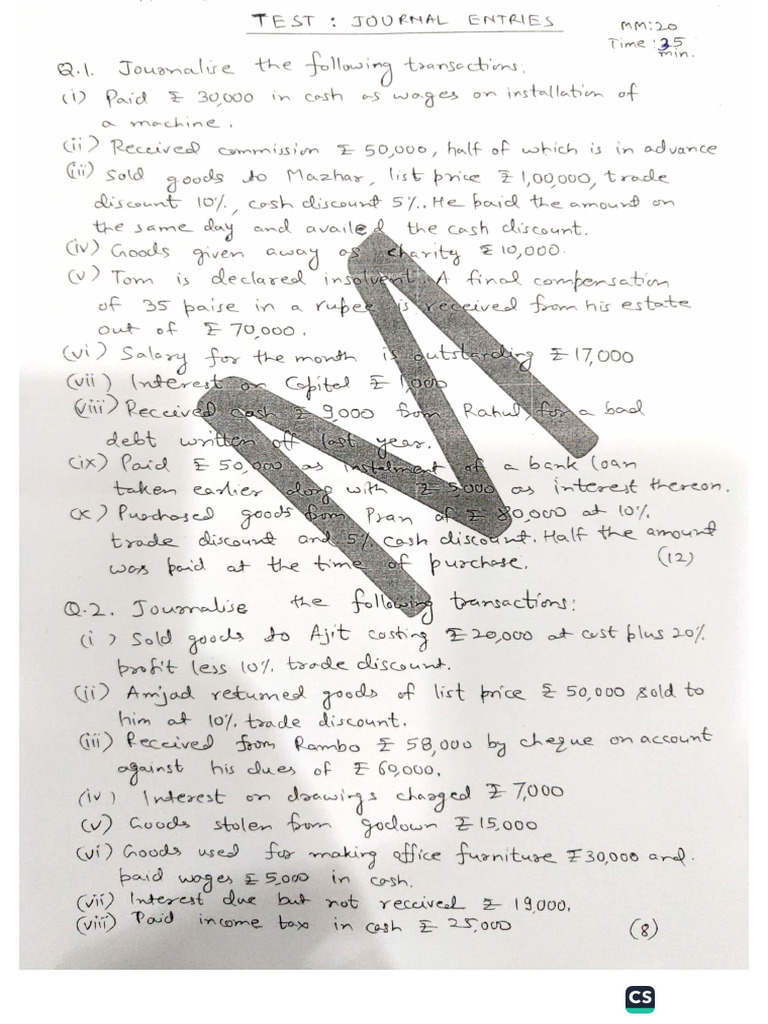 TEST : JOURNAL ENTRIES
MM:20
Time : 35
min.
Q.1. Journalise the following transactions.
(i) Paid ₹ 30,000 in cash as wages on installation of
a machine.
(ii) Received commission ₹ 50,000, half of which is in advance
(iii) Sold goods to Mazhar, list price ₹ 1,00,000, trade
discount 10%, cash discount 5%. He paid the amount on
the same day and availed the cash discount.
(iv) Goods given away as charity ₹ 10,000.
(v) Tom is declared insolvent. A final compensation
of 35 paise in a rupee is received from his estate
out of ₹ 70,000.
(vi) Salary for the month is outstanding ₹ 17,000
(vii) Interest on Capital ₹ 1,000
(viii) Received cash ₹ 9,000 from Rahul, for a bad
debt written off last year.
(ix) Paid ₹ 50,000 as instalment of a bank loan
taken earlier along with ₹ 5,000 as interest thereon.
(x) Purchased goods from Pran of ₹ 80,000 at 10%
trade discount and 5% cash discount. Half the amount
was paid at the time of purchase. (12)
Q.2. Journalise the following transactions:
(i) Sold goods to Ajit costing ₹ 20,000 at cost plus 20%
profit less 10% trade discount.
(ii) Amjad returned goods of list price ₹ 50,000 sold to
him at 10% trade discount.
(iii) Received from Rambo ₹ 58,000 by cheque on account
against his dues of ₹ 60,000.
(iv) Interest on drawings charged ₹ 7,000
(v) Goods stolen from godown ₹ 15,000
(vi) Goods used for making office furniture ₹ 30,000 and.
paid wages ₹ 5,000 in cash.
(vii) Interest due but not received ₹ 19,000.
(viii) Paid income tax in cash ₹ 25,000 (8)
CS